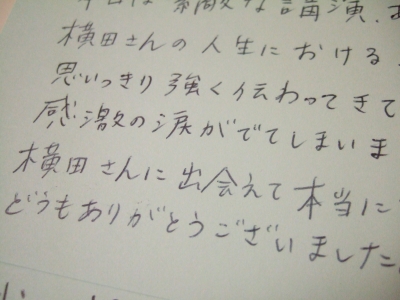 今日は素敵な講演、
横田さんの人生における
思いっきり強く伝わってきて
感激の涙がでてしまいま
横田さんに出会えて本当に
どうもありがとうございました。